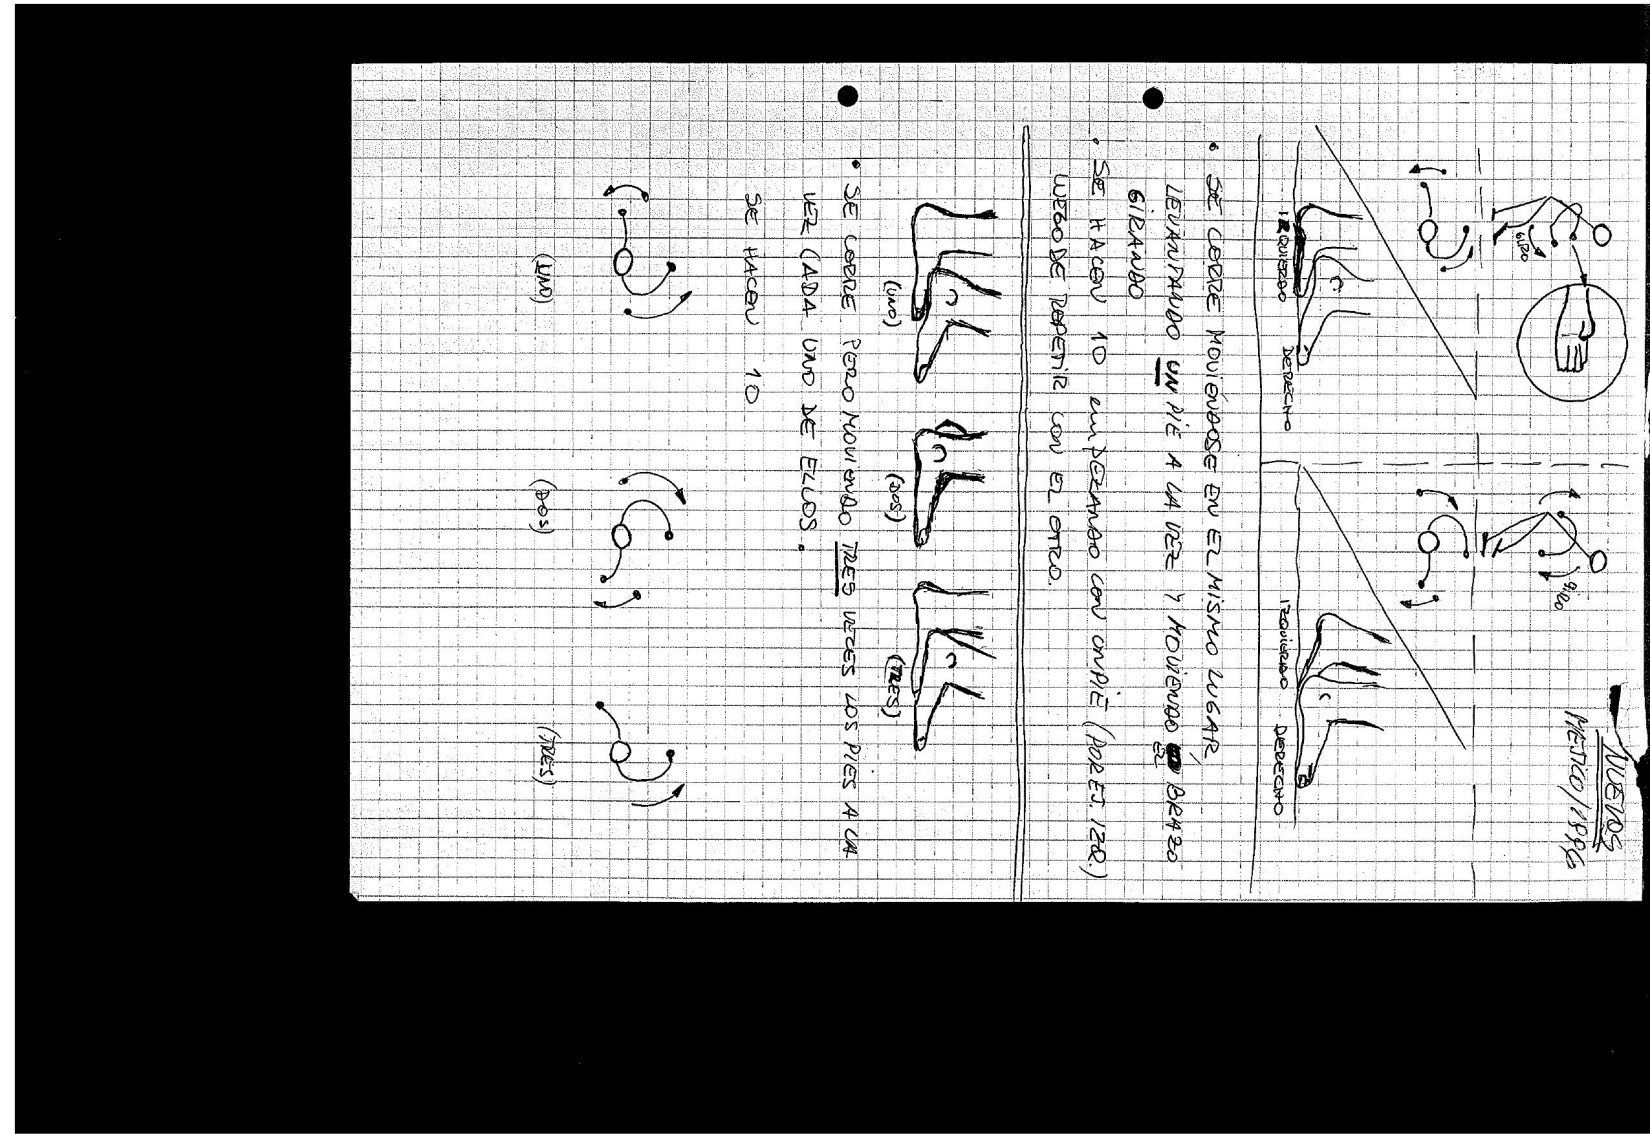 NUEVOS
MEJICO/1996
GIRO
GIRO
IZQUIERDO
DERECHO
IZQUIERDO
DERECHO
• SE CORRE MOVIÉNDOSE EN EL MISMO LUGAR
LEVANTANDO UN PIE A LA VEZ Y MOVIENDO EL BRAZO
GIRANDO
• SE HACEN 10 EMPEZANDO CON UN PIE (POR EJ. IZQ.)
LUEGO DE REPETIR CON EL OTRO.
(UNO)
(DOS)
(TRES)
• SE CORRE PERO MOVIENDO TRES VECES LOS PIES A LA
VEZ CADA UNO DE ELLOS.
SE HACEN 10
(UNO)
(DOS)
(TRES)